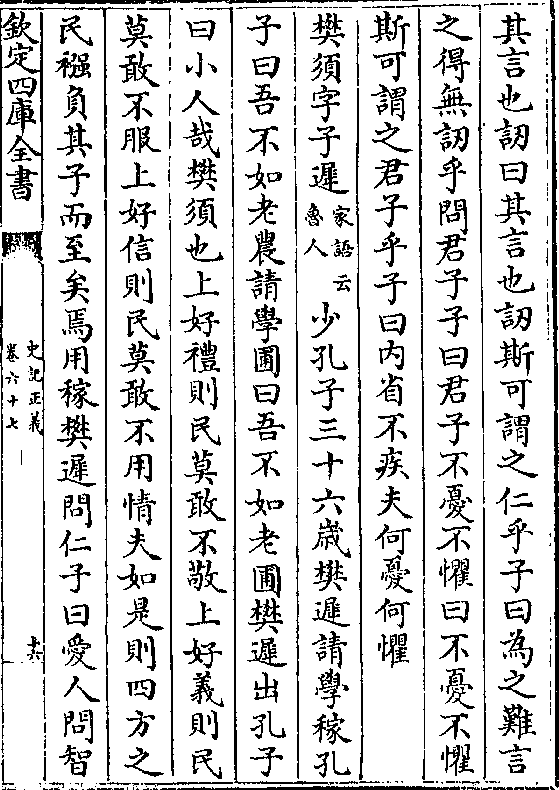 其言也訒曰其言也訒斯可謂之仁乎子曰為之難言
之得無訒乎問君子子曰君子不憂不懼曰不憂不懼
斯可謂之君子乎子曰内省不疚夫何憂何懼
樊須字子遲家語云魯人少孔子三十六歳樊遲請學稼孔
子曰吾不如老農請學圃曰吾不如老圃樊遲出孔子
曰小人哉樊須也上好禮則民莫敢不敬上好義則民
莫敢不服上好信則民莫敢不用情夫如是則四方之
民襁負其子而至矣焉用稼樊遲問仁子曰愛人問智
欽定四庫全書
史記正義
卷六十七
十六